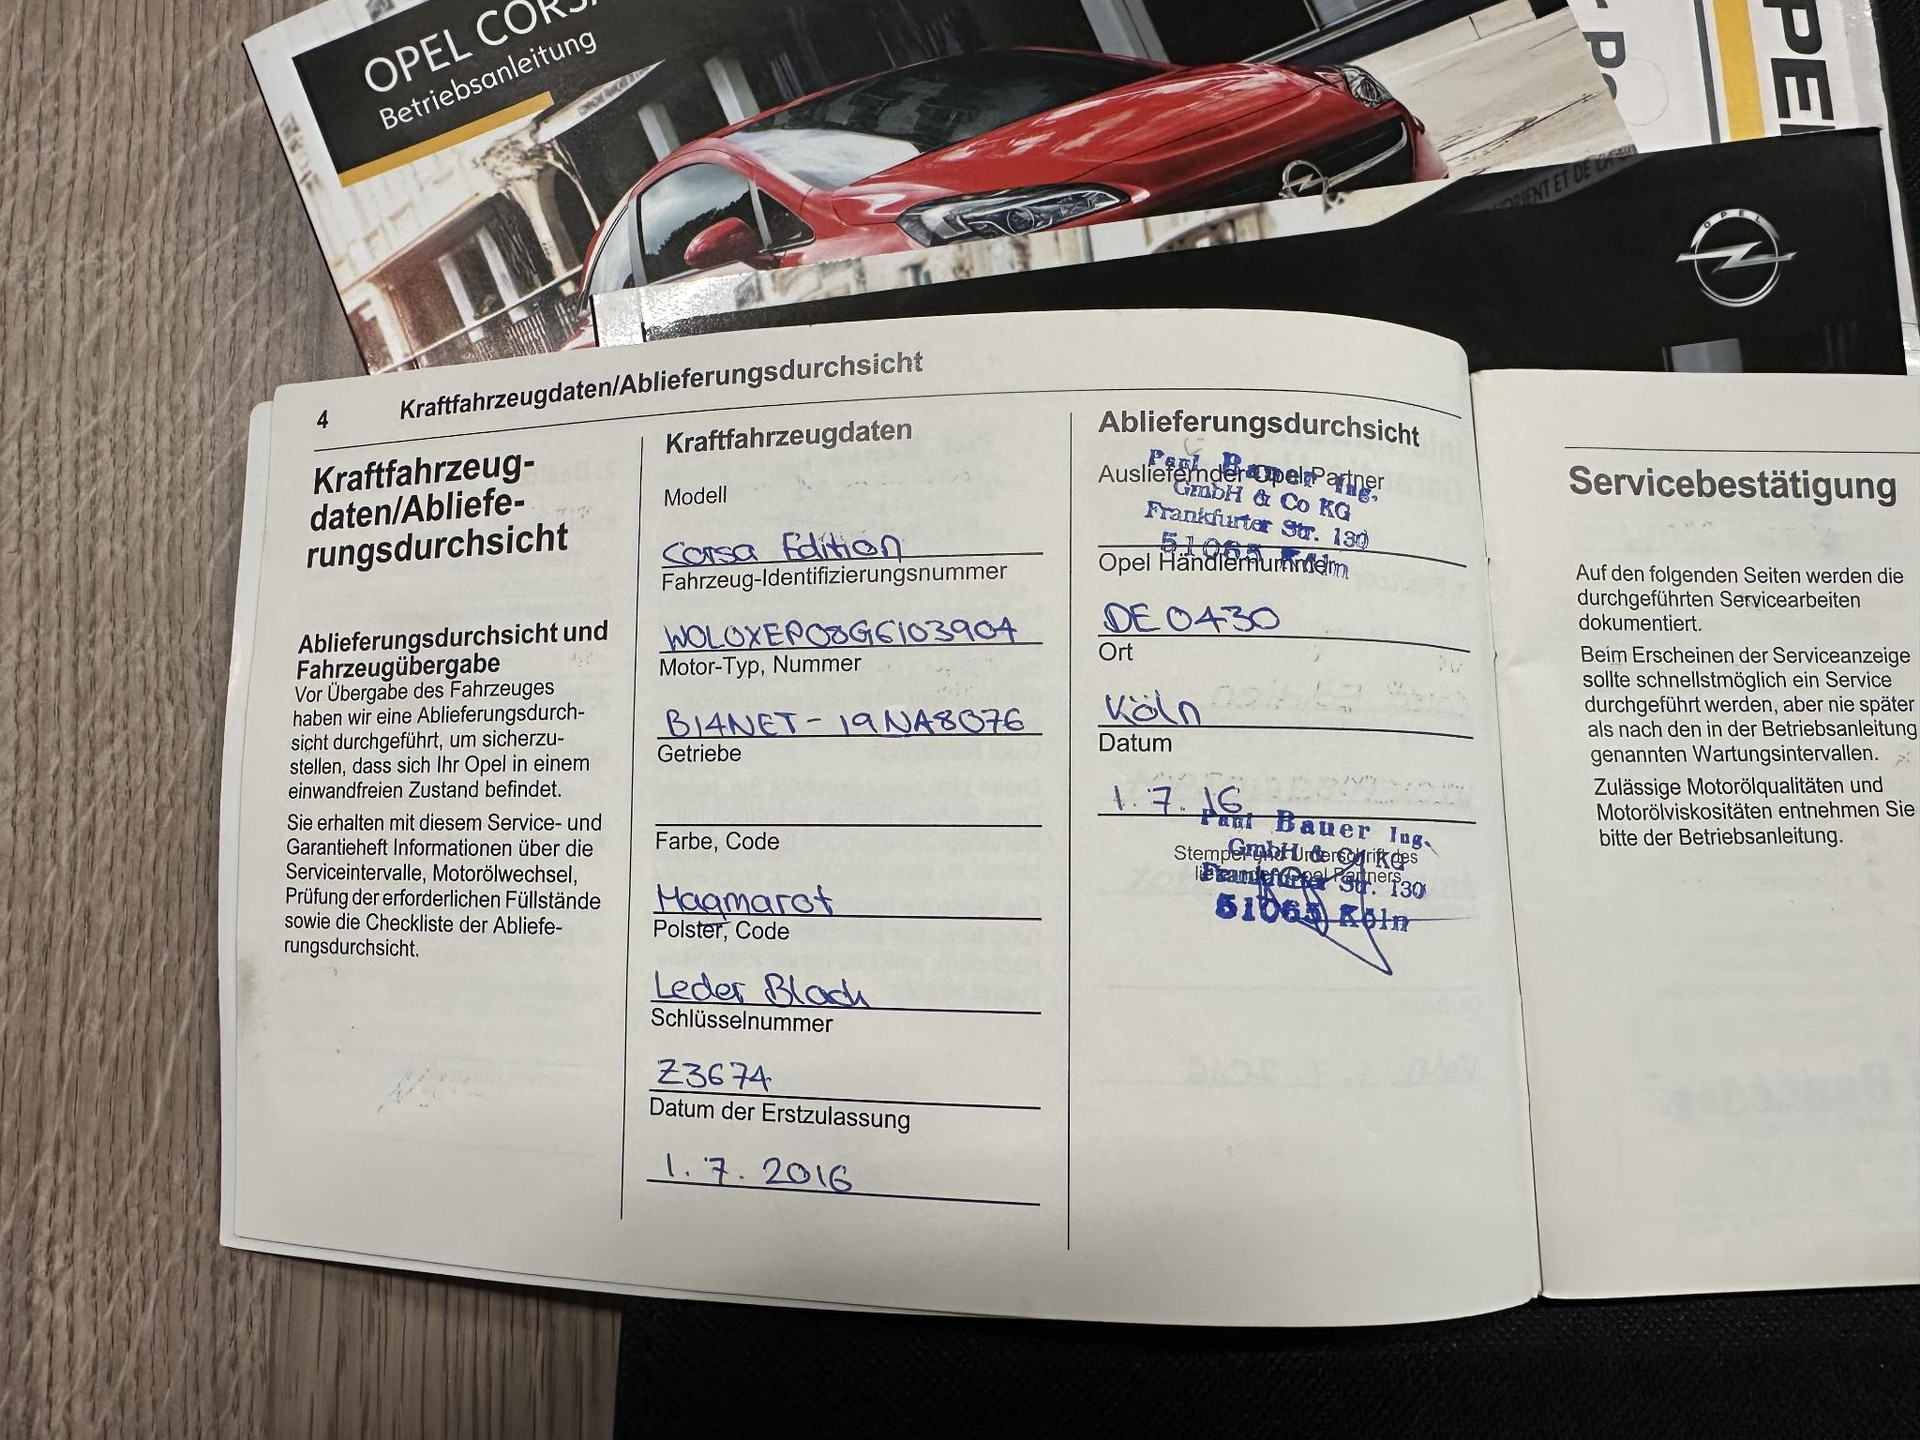 OPEL CORSA
Betriebsanleitung
OPEL
OPEL
4 Kraftfahrzeugdaten/Ablieferungsdurchsicht
Kraftfahrzeug-
daten/Abliefe-
rungsdurchsicht
Ablieferungsdurchsicht und
Fahrzeugübergabe
Vor Übergabe des Fahrzeuges
haben wir eine Ablieferungsdurch-
sicht durchgeführt, um sicherzu-
stellen, dass sich Ihr Opel in einem
einwandfreien Zustand befindet.
Sie erhalten mit diesem Service- und
Garantieheft Informationen über die
Serviceintervalle, Motorölwechsel,
Prüfung der erforderlichen Füllstände
sowie die Checkliste der Abliefe-
rungsdurchsicht.
Kraftfahrzeugdaten
Modell
Corsa Edition
Fahrzeug-Identifizierungsnummer
W0L0XEP08G6103904
Motor-Typ, Nummer
B14NET - 19NA8076
Getriebe
Farbe, Code
Magmarot
Polster, Code
Leder Black
Schlüsselnummer
Z3674
Datum der Erstzulassung
1. 7. 2016
Ablieferungsdurchsicht
Ausliefernder Opel Partner
Paul Bauer Ing.
GmbH & Co KG
Frankfurter Str. 130
51065 Köln
Opel Händlernummer
DE 0430
Ort
Köln
Datum
1. 7. 16
Paul Bauer Ing.
GmbH & Co KG
Frankfurter Str. 130
51065 Köln
Stempel und Unterschrift des
Opel Partners
Servicebestätigung
Auf den folgenden Seiten werden die
durchgeführten Servicearbeiten
dokumentiert.
Beim Erscheinen der Serviceanzeige
sollte schnellstmöglich ein Service
durchgeführt werden, aber nie später
als nach den in der Betriebsanleitung
genannten Wartungsintervallen.
Zulässige Motorölqualitäten und
Motorölviskositäten entnehmen Sie
bitte der Betriebsanleitung.